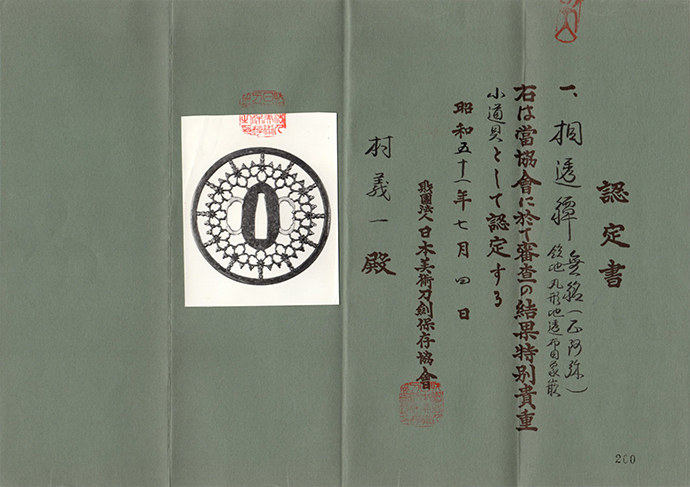 認定書
一、桐透鐔 無銘(正阿弥)
鉄地丸形地透布目象嵌
右は當協會に於て審査の結果特別貴重
小道具として認定する
昭和五十一年七月四日
財團法人日本美術刀剣保存協會
村義一殿
200